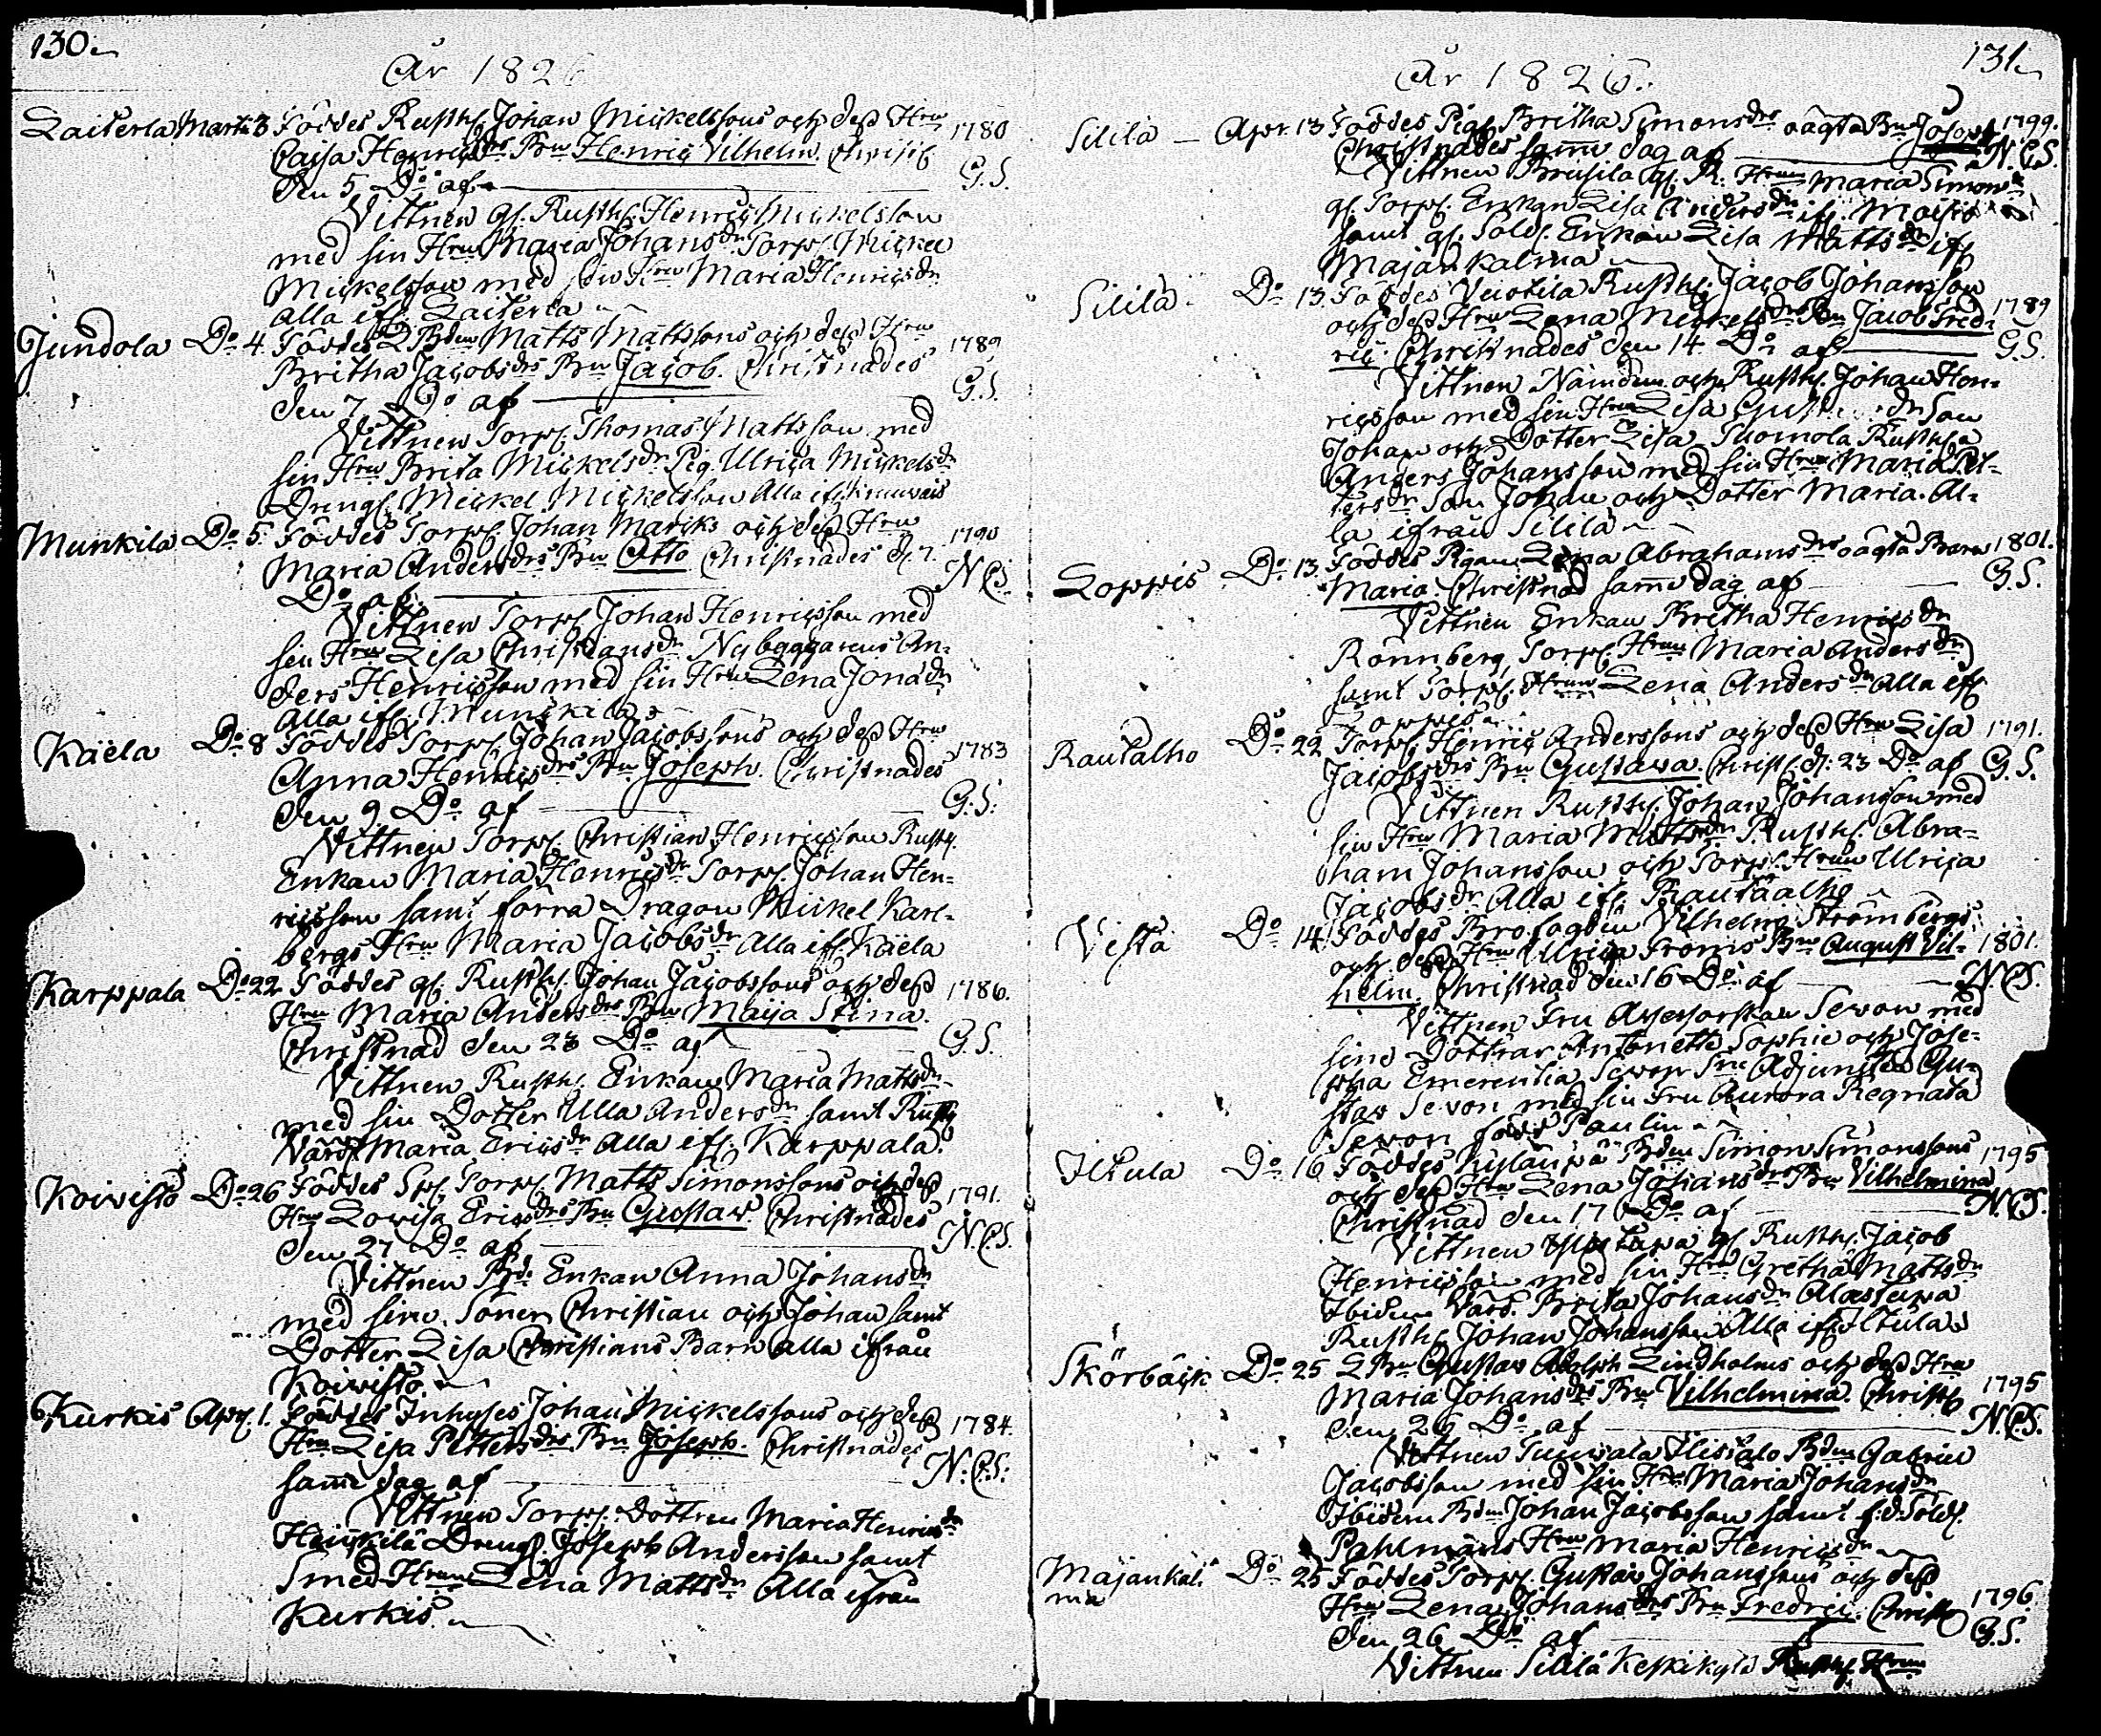 130.
År 182
Laiterla Martii 3 Föddes Rusth. Johan Mickelssons och dess Hru 1780
Cajsa Henricsdrs Bn Henric Vilhelm. Christ
den 5 Do af G.S.
Vittnen gl. Rusth. Henric Mickelsson
med sin Hru Maria Johansdr Torp. Mickel
Mickelsson med sin Hru Maria Henricsdr
alla ifr. Laiterla
Jundola Do 4. Föddes Bden Matts Mattssons och dess Hru 1789
Britha Jacobsdrs Bn Jacob. Christnades
den 7 Do af G.S.
Vittnen Torp. Thomas Mattsson med
sin Hru Brita Mickelsdr Pig. Ulrica Mickelsdr
Dreng. Mickel Mickelsson Alla ifr.
Munkila Do 5. Föddes Torp. Johan Maricks och dess Hru 1790
Maria Andersdrs Bn Otto Christnades d. 7.
Do af N.C.S.
Vittnen Torp. Johan Henricsson med
sin Hru Lisa Christiansdr Nybyggarens An-
ders Henricsson med sin Hru Lena Jonædr
Alla ifr. Munckila
Käela Do 8 Föddes Torp. Johan Jacobssons och dess Hru 1783
Anna Henricsdrs Bn Joseph. Christnades
den 9 Do af G.S.
Vittnen Torp. Christian Henricsson Rusth.
Enkan Maria Henricsdr Torp. Johan Hen-
ricsson samt förra Dragon Mickel Karl-
bergs Hru Maria Jacobsdr alla ifr. Käela
Karppala Do 22 Föddes gl. Rusth. Johan Jacobssons och dess 1786.
Hru Maria Andersdrs Bn Maija Stina.
Christnad den 23 Do af G.S.
Vittnen Rusth. Enkan Maria Mattsdr
med sin Dotter Ulla Andersdr samt Rusth
Värd. Maria Ericsdr alla ifr. Karppala.
Koivisto Do 26 Föddes Spl. Torp. Matts Simonssons och dess 1791.
Hru Lovisa Ericsdrs Bn Gustav. Christnades
den 27 Do af N.C.S.
Vittnen Bd. Enkan Anna Johansdr
med sine Söner Christian och Johan samt
Dotter Lisa Christians Barn alla ifrån
Koivisto.
Kurkis Apr. 1. Föddes Inhyses Johan Mickelssons och dess 1784.
Hru Lisa Pettersdrs Bn Joseph. Christnades
samme dag af N.C.S.
Vittnen Torp. Dottren Maria Henricsdr
Heickilä Dreng. Joseph Andersson samt
Smed Hrun Lena Mattsdr Alla ifrån
Kurkis.
131.
År 1826.
Sililä Apr. 13 Föddes Pig. Britha Simonsdrs oägta Bn Joseph 1799.
Christnades samme dag af N.C.S.
Vittnen Brusila gl. R. Hrun Maria Simonsdr
gl. Torp. Enkan Lisa Andersdr ifr. Moisio
samt gl. Sold. Enkan Lisa Mattsdr ifr
Majankalma
Sililä Do 13. Föddes Veiotila Rusth. Jacob Johansson
och dess Hru Lena Mickelsdrs Bn Jacob Fred- 1789
ric. Christnades den 14 Do af G.S.
Vittnen Nämdem. och Rusth. Johan Hen-
ricsson med sin Hru Lisa Gust dr Son
Johan och Dotter Lisa Thomola Rusth.
Anders Johansson med sin Hru Maria Pet-
tersdr Son Johan och Dotter Maria. Al-
la ifrån Sililä
Loppis Do 13. Föddes Pigan Lena Abrahamsdrs oägta Barn 1801.
Maria. Christnad samme dag af G.S.
Vittnen Enkan Britha Henricsdr
Rönnberg, Torp. Hrun Maria Andersdr
samt Torp. Hrun Lena Andersdr alla ifr
Loppis
Rautalho Do 22 Torp. Henric Anderssons och dess Hru Lisa 1791.
Jacobsdrs Bn Gustava. Christ. d. 23 Do af G.S.
Vittnen Rusth. Johan Johansson med
sin Hru Maria Mattsdr Rusth. Abra-
ham Johansson och Torp. Hrun Ulrica
Jacobsdr Alla ifr. Rautaalho
Vesta Do 14. Föddes Brofogden Vilhelm Strömbergs
och dess Hru Ulrica Froms Bn August Vil- 1801.
helm. Christnad den 16 Do af N.C.S.
Vittnen Fru Assessorskan Sevon med
sine Döttrar Antonetta Sophie och Jose-
pha Emerentia Sevon Adjuncten Gu-
stav Sevon med sin Fru Aurora Regnata
Sevon född Paulin
Iltula Do 16 Föddes Kylänpä Bden Simon Simonssons 1795
och dess Hru Lena Johansdrs Bn Vilhelmina
Christnad den 17 Do af N.C.S.
Vittnen gl Rusth. Jacob
Henricsson med sin Hru Gretha Mattsdr
Ibidem Värd. Brita Johansdr Alastupa
Rusth. Johan Johansson Alla ifr Iltula
Skörbäck Do 25 Gustav Adolph Lindholms och dess Hru
Maria Johansdrs Bn Vilhelmina. Christ 1795
den 26 Do af N.C.S.
Vittnen Tuuvala Bden Gabriel
Jacobsson med sin Hru Maria Johansdr
Ibidem Bdn Johan Jacobsson samt f.d. Sold.
Pahlmans Hru Maria Henricsdr
Majankal-
ma Do 25 Föddes Torp. Gustav Johanssons och dess
Hru Lena Johansdrs Bn Fredric. Christ 1796
den 26 Do af G.S.
Vittnen Sililä Keskikylä Rusth. Hrun